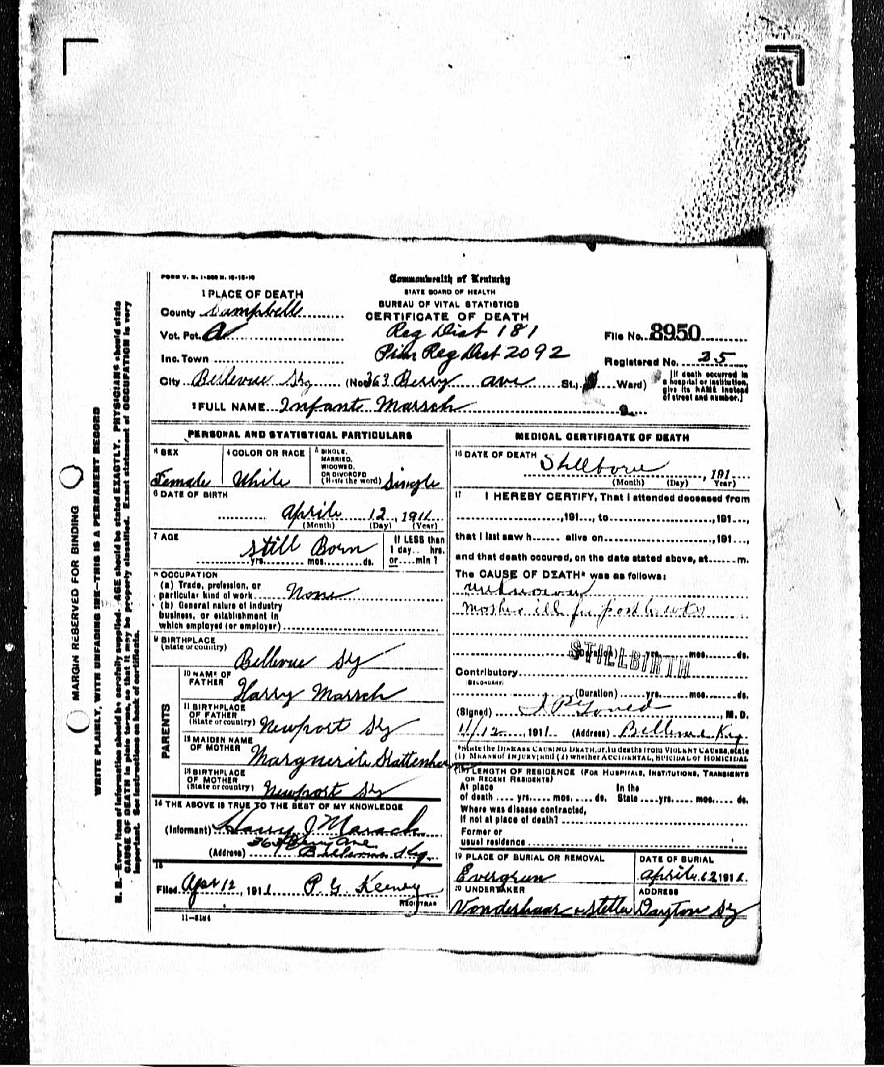 FORM V. S. 1-
Commonwealth of Kentucky
STATE BOARD OF HEALTH
BUREAU OF VITAL STATISTICS
CERTIFICATE OF DEATH
1 PLACE OF DEATH
County Campbell
Vot. Pct. A
Reg Dist 181
File No. 8950
Inc. Town
Prim Reg Dist 2092
Registered No. 25
City Bellevue Ky (No. 363 Berry ave St.; Ward)
[If death occurred in a hospital or institution, give its NAME instead of street and number.]
2 FULL NAME Infant Marsch
PERSONAL AND STATISTICAL PARTICULARS
3 SEX
Female
4 COLOR OR RACE
White
5 SINGLE, MARRIED, WIDOWED, OR DIVORCED (Write the word) Single
6 DATE OF BIRTH
April 12, 1911
(Month) (Day) (Year)
7 AGE
Still Born
yrs. mos. ds.
If LESS than 1 day, hrs. or min?
8 OCCUPATION
(a) Trade, profession, or particular kind of work None
(b) General nature of industry business, or establishment in which employed (or employer)
9 BIRTHPLACE
(State or country)
Bellevue Ky
PARENTS
10 NAME OF FATHER
Harry Marsch
11 BIRTHPLACE OF FATHER
(State or country) Newport Ky
12 MAIDEN NAME OF MOTHER
Marguerite
13 BIRTHPLACE OF MOTHER
(State or country) Newport Ky
14 THE ABOVE IS TRUE TO THE BEST OF MY KNOWLEDGE
(Informant) Harry J Marsch
(Address) 363 Berry Ave
Bellevue Ky.
15
Filed Apr 12, 1911 P. G. Keeney
REGISTRAR
11-5184
MEDICAL CERTIFICATE OF DEATH
16 DATE OF DEATH Stillborn, 191
(Month) (Day) (Year)
17 I HEREBY CERTIFY, That I attended deceased from
, 191 , to , 191 ,
that I last saw h alive on , 191 ,
and that death occured, on the date stated above, at m.
The CAUSE OF DEATH* was as follows:
unknown
Mother ill for past
STILLBIRTH
(Duration) yrs. mos. ds.
Contributory
SECONDARY
(Duration) yrs. mos. ds.
(Signed) , M. D.
4/12, 1911 (Address) Bellevue Ky.
*State the DISEASE CAUSING DEATH, or, in deaths from VIOLENT CAUSES, state
(1) MEANS OF INJURY; and (2) whether ACCIDENTAL, SUICIDAL or HOMICIDAL
18 LENGTH OF RESIDENCE (FOR HOSPITALS, INSTITUTIONS, TRANSIENTS
OR RECENT RESIDENTS)
At place of death yrs. mos. ds. In the State yrs. mos. ds.
Where was disease contracted,
If not at place of death?
Former or
usual residence
19 PLACE OF BURIAL OR REMOVAL
Evergreen
DATE OF BURIAL
April 12 1911
20 UNDERTAKER
Vonderhaar & Stetter
ADDRESS
Dayton Ky
MARGIN RESERVED FOR BINDING
WRITE PLAINLY, WITH UNFADING INK—THIS IS A PERMANENT RECORD
N. B.—Every item of information should be carefully supplied. AGE should be stated EXACTLY. PHYSICIANS should state
CAUSE OF DEATH in plain terms, so that it may be properly classified. Exact statement of OCCUPATION is very
important. See instructions on back of certificate.